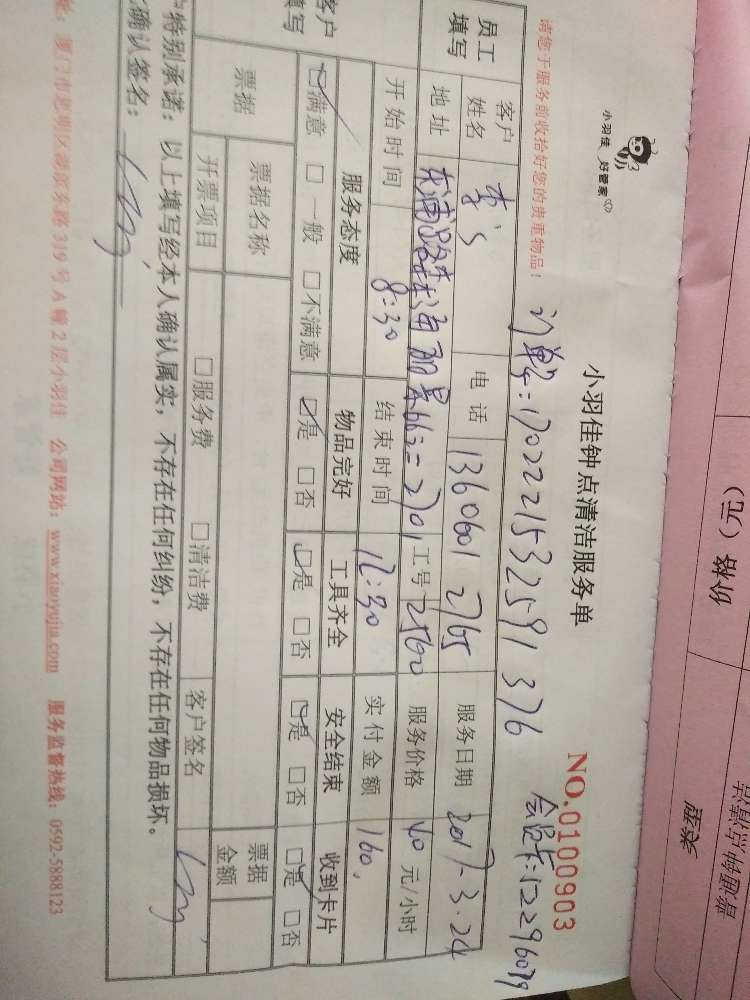 小羽佳 好管家
小羽佳钟点清洁服务单
NO.0100903
请您于服务前收拾好您的贵重物品!
订单号:170222153259 1376
会员卡:12296039
员工填写
客户姓名 李 电话 13606012765 服务日期 2017-3.24
地址 2701 工号 2560 服务价格 40 元/小时
开始时间 8:30 结束时间 12:30 实付金额 160.
客户填写
服务态度 物品完好 工具齐全 安全结束 收到卡片
☑满意 □一般 □不满意 ☑是 □否 ☑是 □否 ☑是 □否 ☑是 □否
票据
票据名称 票据金额
开票项目 □服务费 □清洁费 客户签名
户特别承诺:以上填写经本人确认属实,不存在任何纠纷,不存在任何物品损坏。
确认签名:
址:厦门市思明区湖滨东路319号A幢2层小羽佳 公司网站:www.xiaoyujia.com 服务监督热线:0592-5888123
价格(元)